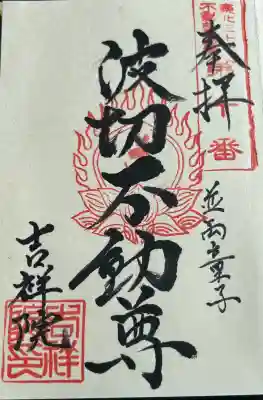 奉拝
番
並両童子
波切不動尊
吉祥院